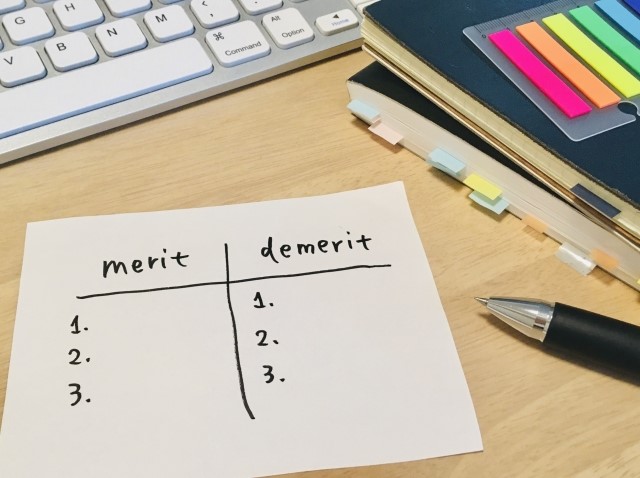 G H J K L
V B N M < ,
⌘ Command
Alt Option
Home
merit demerit
1. 1.
2. 2.
3. 3.